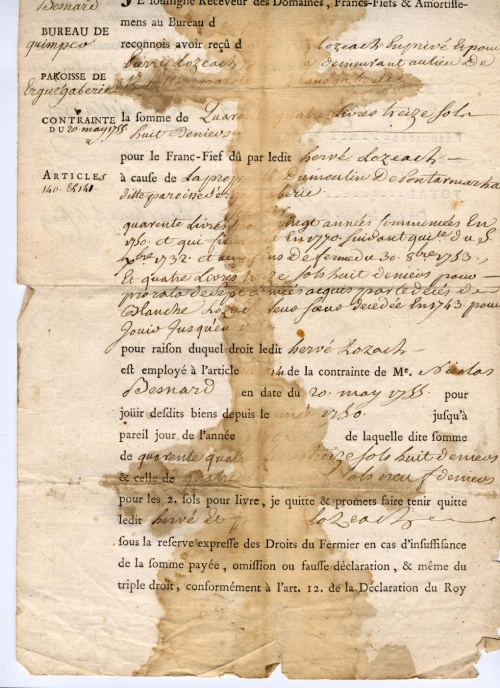 Besnard
BUREAU DE
quimper
PAROISSE DE
Ergué gaberic
CONTRAINTE
DU 20. may 1755
ARTICLES
140. & 141.
JE soussigné Receveur des Domaines, Francs-Fiefs & Amortisse-
mens au Bureau d
reconnois avoir reçû d Lozeach En privé Et pour
pierre Lozeach demeurant au lieu De
la somme de Quarante quatre Livres treize sols
huit deniers
pour le Franc-Fief dû par ledit hervé Lozeach
à cause de La propriété Du moulin De
ditte paroisse d'ergué gaberic
quarente Livres pour vingt années Commencées En
1750. et qui En 1770. suivant quitce du 5.
xbre 1732. et aux fins de ferme du 30. 8bre 1753.
Et quatre Livres treize sols huit deniers pour
prorata de sept années acquis par le décès de
Blanche Lozeach sœur décedée En 1743. pour
Jouir Jusqu'en
pour raison duquel droit ledit hervé Lozeach
est employé à l'article 14 de la contrainte de Me. Nicolas
Besnard en date du 20. may 1755. pour
joüir desdits biens depuis le année 1750. jusqu'à
pareil jour de l'année de laquelle dite somme
de quarente quatre Livres treize sols huit deniers
& celle de quatre sols neuf deniers
pour les 2. sols pour livre, je quitte & promets faire tenir quitte
ledit hervé Et Lozeach
sous la reserve expresse des Droits du Fermier en cas d'insuffisance
de la somme payée, omission ou fausse déclaration, & même du
triple droit, conformément à l'art. 12. de la Déclaration du Roy